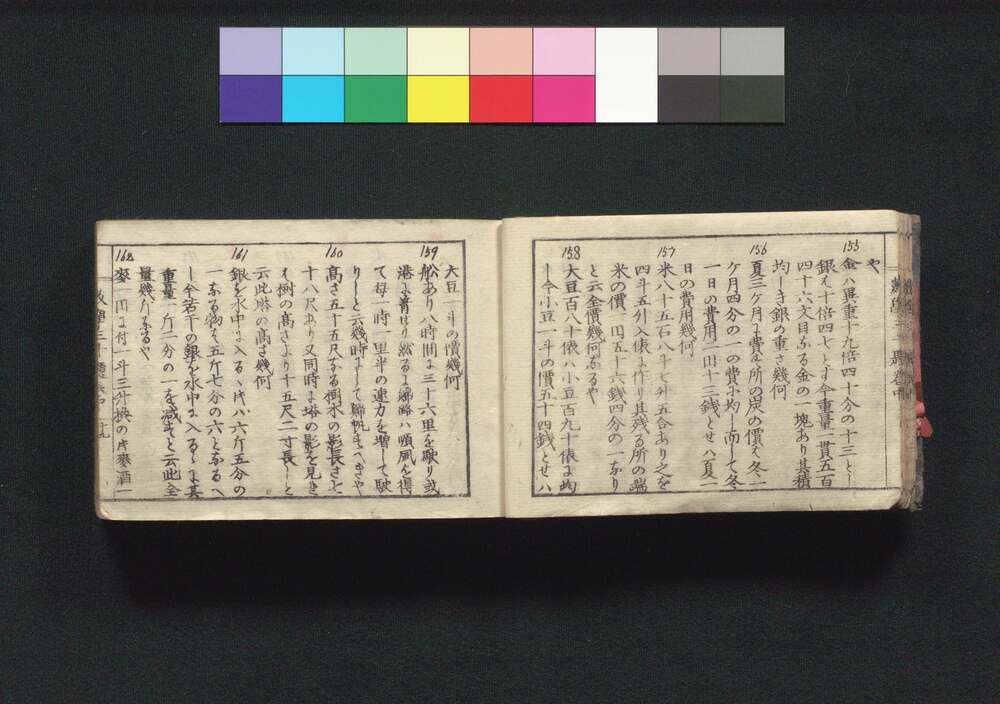 や
155
金ハ異重十九倍四十分の十三とし
銀ハ十倍四七とす今重量一貫五百
四十六文目なる金の一塊あり其積
均しき銀の重さ幾何
156
夏三ヶ月に費す所の炭の價ハ冬一
ヶ月四分の一の費に均し而して冬
一日の費用一円十三銭とせハ夏一
日の費用幾何
157
米八十五石八斗七升五合あり之を
四斗五升入俵に作り其残る所の端
米の價一円五十六銭四分の一なり
と云金價幾何なるや
158
大豆百八十俵ハ小豆百九十俵に均
し今小豆一斗の價五十四銭とせハ
大豆一斗の價幾何
159
舩あり八時間に三十六里を駛り或
港に着けり然るに歸路ハ順風を得
て毎一時一里半の速力を増して駛
りしと云幾時にして歸帆すへきや
160
高さ五十五尺なる樹木の影長さ七
十八尺あり又同時に塔の影を見き
に樹の高さより十五尺二寸長しと
云此塔の高さ幾何
161
銀を水中に入るゝ片ハ六斤五分の
一なる物も五斤七分の六となるへ
し今若干の銀を水中に入るゝに其
重量一斤二分の一を減すと云此全
量幾斤なるや
162
麥一円に付一斗三升換の片麥酒一